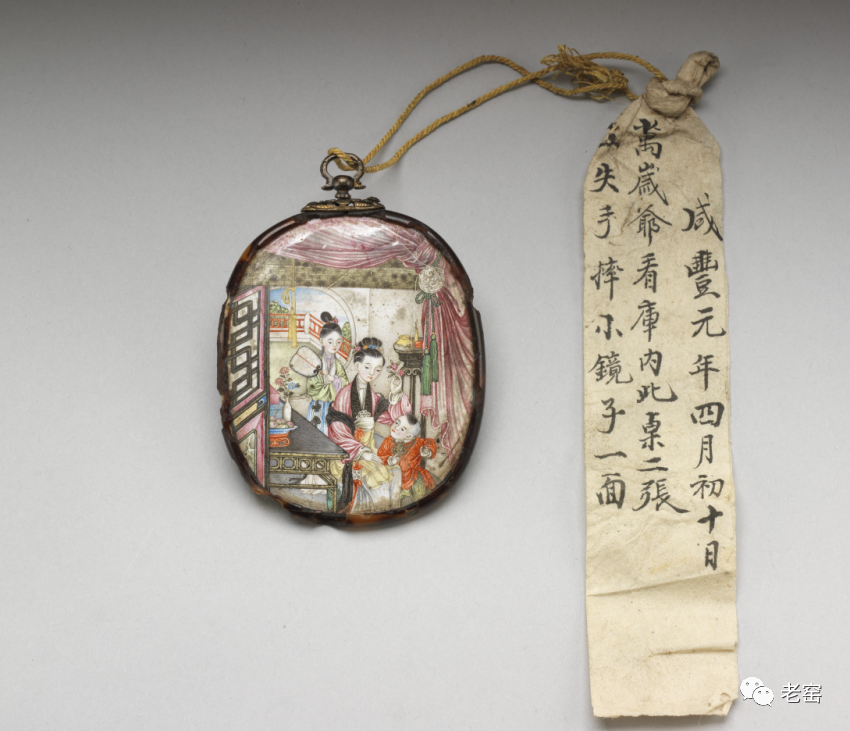 咸豐元年四月初十日
萬歲爺看庫內此桌二張
失手摔小鏡子一面
老窑